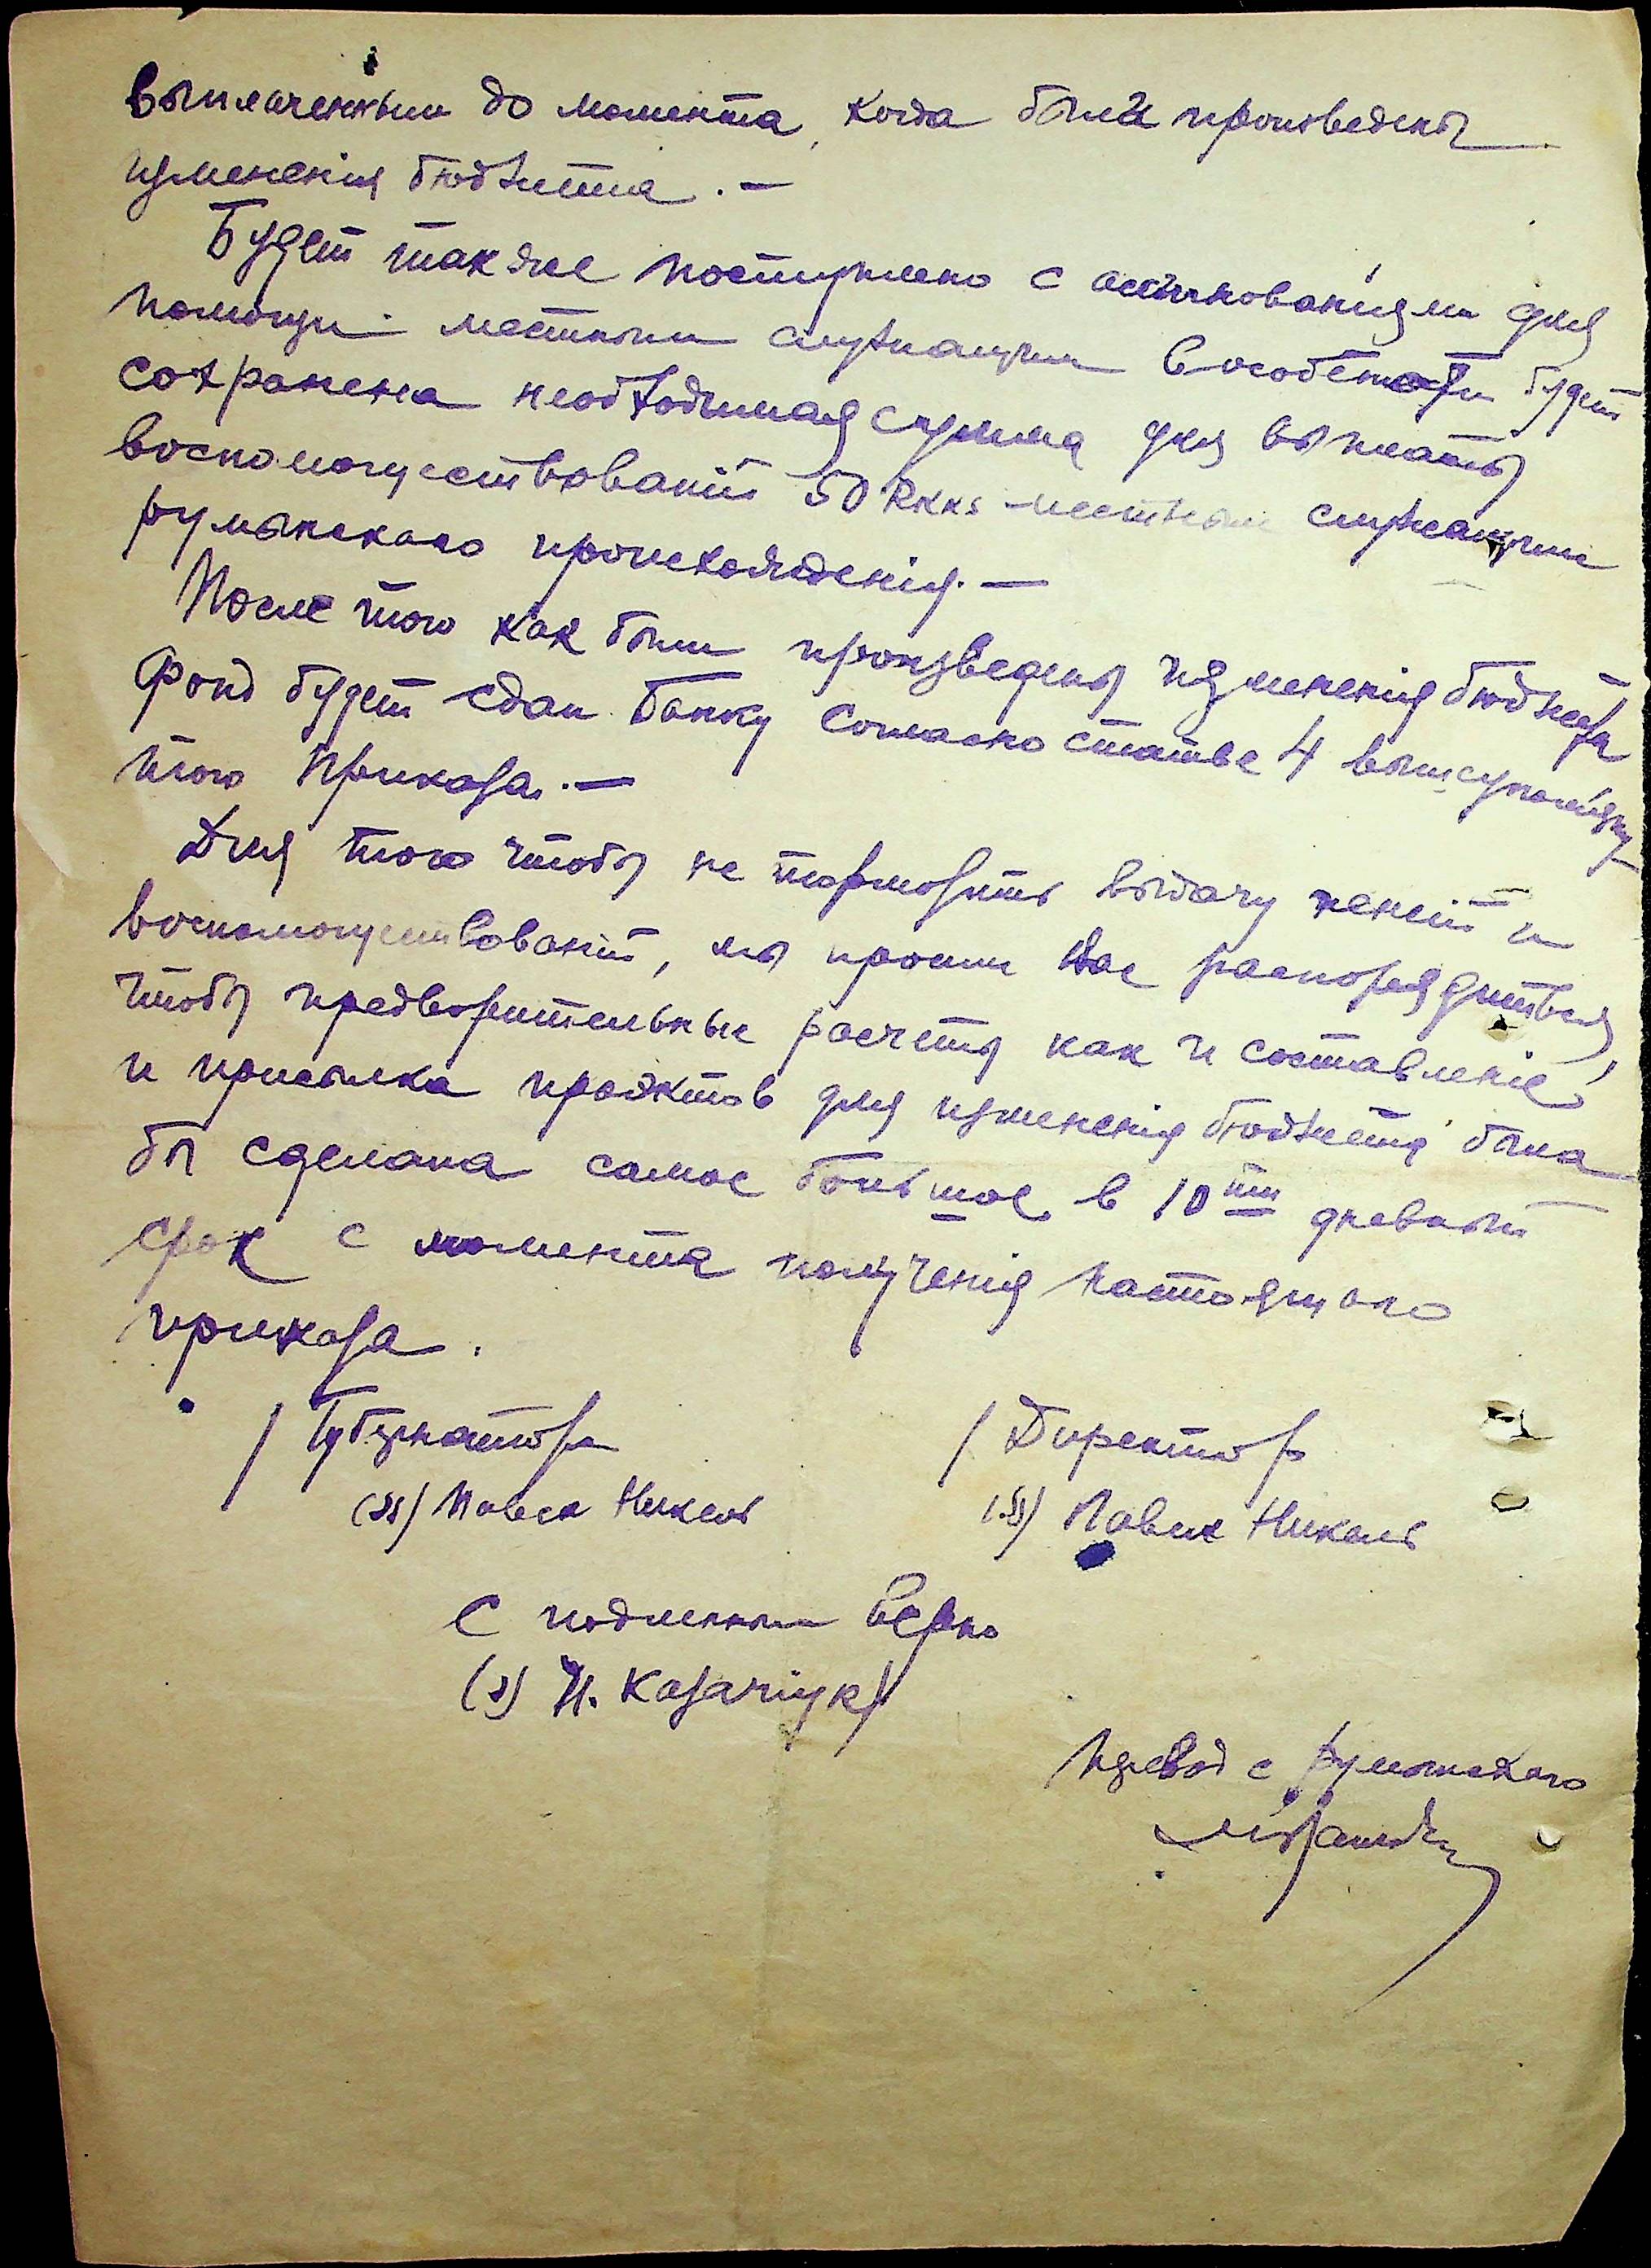 выплаченным до момента, когда были произведены
изменения бюджета. —
Будет также поступлено с ассигнованіями для
помощи местным служащим в особенности будет
сохранена необходимая сумма для выплаты
воспомоществованій 50 Rkks местным служащим
румынскаго происхожденія. —
После того как были произведены изменения бюджета
Фонд будет сдан Банку согласно статье 4 вышеупомяну-
того Приказа. —
Для того чтобы не тормозить выдачу пенсій и
воспомоществованій, мы просим Вас распорядиться,
чтобы предворительные расчеты как и составленіе
и присылка проэктов для изменения бюджета была
бы сделана самое большое в 10тии дневный
срок с момента полученія настоящаго
приказа.
/ Губернатор
(ss) Павел Никель
/ Директор
(ss) Павел Никель
С подленным верно
(s) И. Казачіук
Перевод с румынскаго